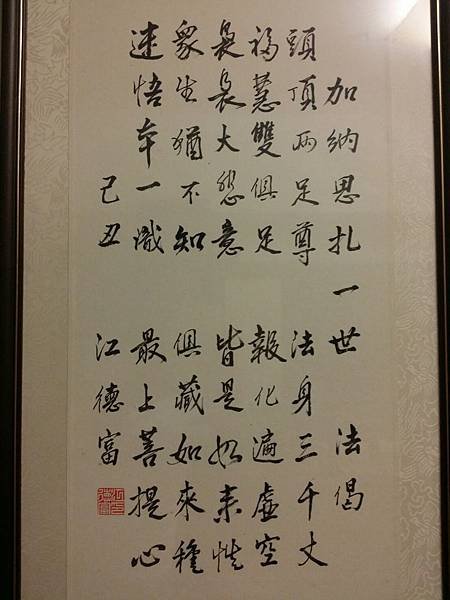 加納恩扎一世 法偈
頭頂兩足尊 法身三千丈
福慧雙俱足 報化遍虛空
裊裊大悲意 皆是如來性
眾生猶不知 俱藏如來種
迷悟本一識 最上菩提心
己丑 江德富